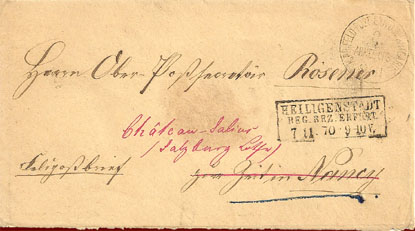 Herrn Ober-Postsecretär Rösener
HEILIGENSTADT
REG. BEZ. ERFURT
7 11 70 9-10 V.
Château-Salins
(Salzburg Lothr)
Feldpostbrief
zur Zeit in Nancy